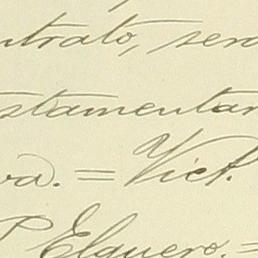 ntrato, sera
stamentar
va. = Vict.
P Elguero. =